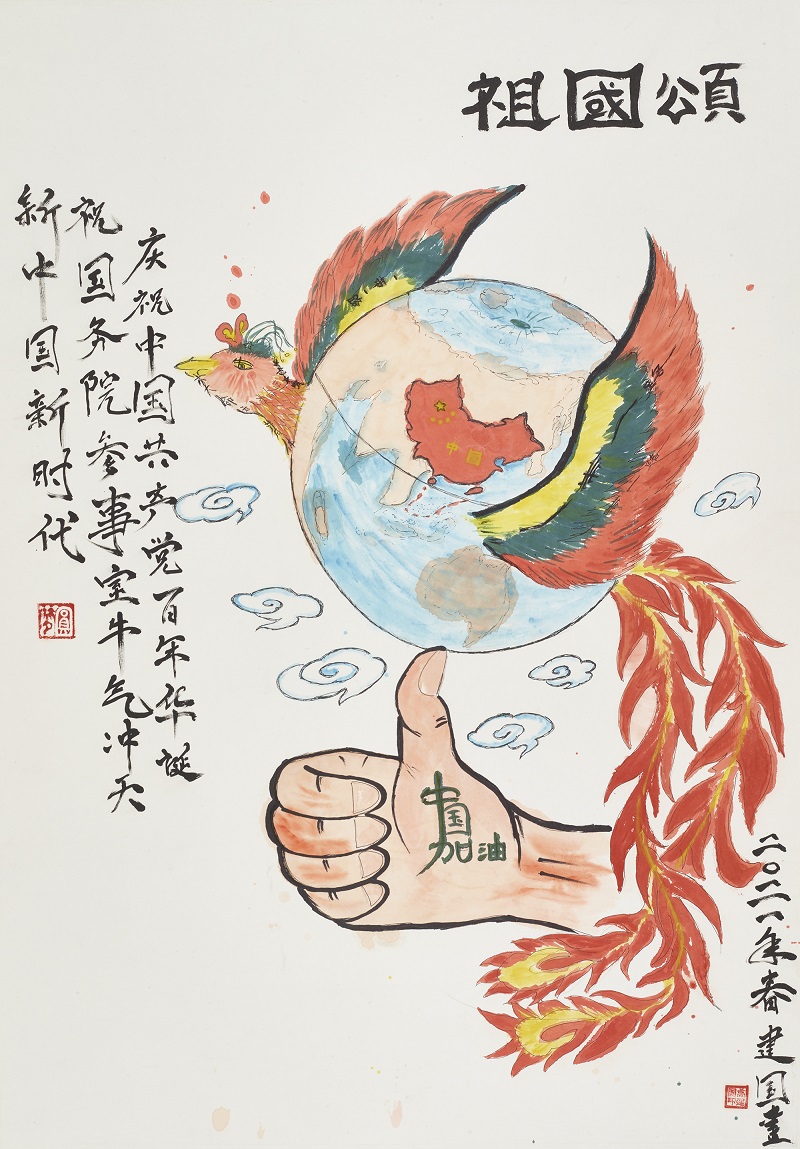 祖國頌
庆祝中国共产党百年华诞
祝国务院参事室牛气冲天
新中国新时代
中国
中国
加油
二〇二一年春建国